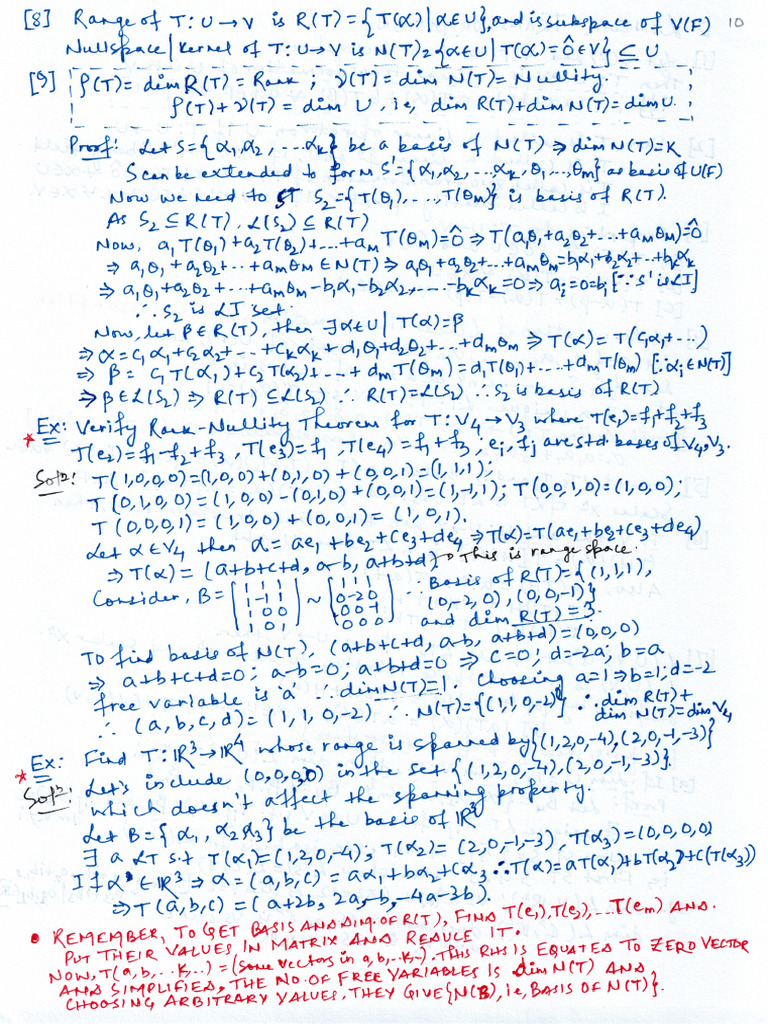 [8] Range of T:U→V is R(T)={T(α)|α∈U},and is subspace of V(F) 10
Nullspace|Kernel of T:U→V is N(T)={α∈U|T(α)=Ô∈V} ⊆ U
[9] ρ(T)=dim R(T)=Rank ; ν(T)=dim N(T)=Nullity.
ρ(T)+ν(T)=dim U, ie, dim R(T)+dim N(T)=dim U.
Proof: Let S={α₁,α₂,...αₖ} be a basis of N(T) ⇒ dim N(T)=K
S can be extended to form S'={α₁,α₂,...αₖ,θ₁,...θₘ} as basis of U(F)
Now we need to ST S₂={T(θ₁),...,T(θₘ)} is basis of R(T).
As S₂⊆R(T), L(S₂)⊆R(T)
Now, a₁T(θ₁)+a₂T(θ₂)+...+aₘT(θₘ)=Ô ⇒ T(a₁θ₁+a₂θ₂+...+aₘθₘ)=Ô
⇒ a₁θ₁+a₂θ₂+...+aₘθₘ∈N(T) ⇒ a₁θ₁+a₂θ₂+...+aₘθₘ=b₁α₁+b₂α₂+...+bₖαₖ
⇒ a₁θ₁+a₂θ₂+...+aₘθₘ-b₁α₁-b₂α₂,...-bₖαₖ=0 ⇒ aᵢ=0=bᵢ [∵ S' is LI]
∴ S₂ is LI set.
Now, let β∈R(T), then ∃ α∈U | T(α)=β
⇒ α=c₁α₁+c₂α₂+...+cₖαₖ+d₁θ₁+d₂θ₂+...+dₘθₘ ⇒ T(α)=T(c₁α₁+...)
⇒ β=c₁T(α₁)+c₂T(α₂)+...+dₘT(θₘ)=d₁T(θ₁)+...+dₘT(θₘ) [∵ αᵢ∈N(T)]
⇒ β∈L(S₂) ⇒ R(T)⊆L(S₂) ∴ R(T)=L(S₂) ∴ S₂ is basis of R(T)
* Ex: Verify Rank-Nullity Theorem for T:V₄→V₃ where T(e₁)=f₁+f₂+f₃
T(e₂)=f₁-f₂+f₃, T(e₃)=f₁, T(e₄)=f₁+f₃; eᵢ, fⱼ are std bases of V₄,V₃.
Solⁿ: T(1,0,0,0)=(1,0,0)+(0,1,0)+(0,0,1)=(1,1,1);
T(0,1,0,0)=(1,0,0)-(0,1,0)+(0,0,1)=(1,-1,1); T(0,0,1,0)=(1,0,0);
T(0,0,0,1)=(1,0,0)+(0,0,1)=(1,0,1).
Let α∈V₄ then α=ae₁+be₂+ce₃+de₄ ⇒ T(α)=T(ae₁+be₂+ce₃+de₄)
⇒ T(α)=(a+b+c+d, a-b, a+b+d) → This is range space.
Consider, B=[1 1 1; 1 -1 1; 1 0 0; 1 0 1] ~ [1 1 1; 0 -2 0; 0 0 -1; 0 0 0] ∴ Basis of R(T)={(1,1,1),
(0,-2,0), (0,0,-1)}
and dim R(T)=3.
To find basis of N(T), (a+b+c+d, a-b, a+b+d)=(0,0,0)
⇒ a+b+c+d=0; a-b=0; a+b+d=0 ⇒ c=0; d=-2a; b=a
free variable is 'a' ∴ dim N(T)=1. Choosing a=1⇒b=1; d=-2
∴ (a,b,c,d)=(1,1,0,-2) ∴ N(T)={(1,1,0,-2)} ∴ dim R(T)+
dim N(T)=dim V₄
* Ex: Find T:ℝ³→ℝ⁴ whose range is spanned by {(1,2,0,-4),(2,0,-1,-3)}
Solⁿ: Let's include (0,0,0,0) in the set {(1,2,0,-4),(2,0,-1,-3)}.
which doesn't affect the spanning property.
Let B={α₁,α₂α₃} be the basis of ℝ³
∃ a LT s.t T(α₁)=(1,2,0,-4), T(α₂)=(2,0,-1,-3), T(α₃)=(0,0,0,0)
If α∈ℝ³ ⇒ α=(a,b,c)=aα₁+bα₂+cα₃ ∴ T(α)=aT(α₁)+bT(α₂)+c(T(α₃)
⇒ T(a,b,c)=(a+2b, 2a,-b,-4a-3b).
• REMEMBER, TO GET BASIS AND DIM. OF R(T), FIND T(e₁),T(e₂),...T(eₘ) AND
PUT THEIR VALUES IN MATRIX AND REDUCE IT.
NOW, T(a,b,..K,..)=(Some vectors in a,b,..K,..). THIS RHS IS EQUATED TO ZERO VECTOR
AND SIMPLIFIED, THE NO. OF FREE VARIABLES IS dim N(T) AND
CHOOSING ARBITRARY VALUES, THEY GIVE {N(B), ie, BASIS OF N(T)}.